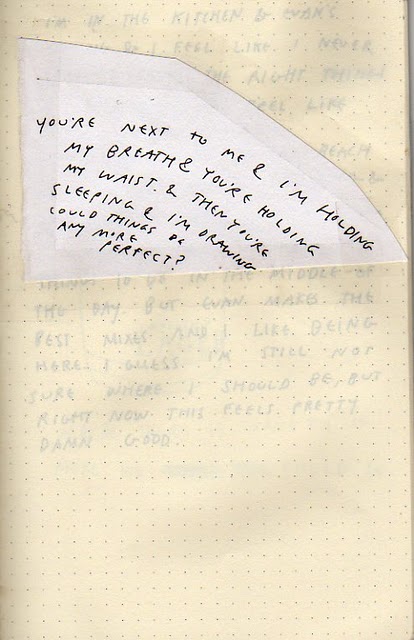 I'M IN THE KITCHEN & EVAN'S
& I FEEL LIKE I NEVER
THE RIGHT THINGS
FEEL LIKE
BEACH
YOU'RE NEXT TO ME & I'M HOLDING
MY BREATH & YOU'RE HOLDING
MY WAIST. & THEN YOU'RE
SLEEPING & I'M DRAWING
COULD THINGS BE
ANY MORE
PERFECT?
THINGS TO DO IN THE MIDDLE OF
THE DAY. BUT EVAN MAKES THE
BEST MIXES AND I LIKE BEING
HERE I GUESS. I'M STILL NOT
SURE WHERE I SHOULD BE, BUT
RIGHT NOW THIS FEELS PRETTY
DAMN GOOD.